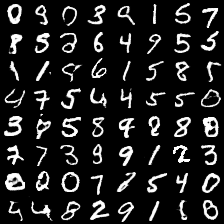 0 9 0 3 9 1 5 7
8 5 2 6 4 9 5 5
1 1 8 6 1 5 8 5
4 7 5 4 4 5 5 0
3 8 5 8 9 8 8 8
7 7 3 9 9 1 2 3
8 2 0 7 2 5 4 0
5 4 8 2 9 1 1 8